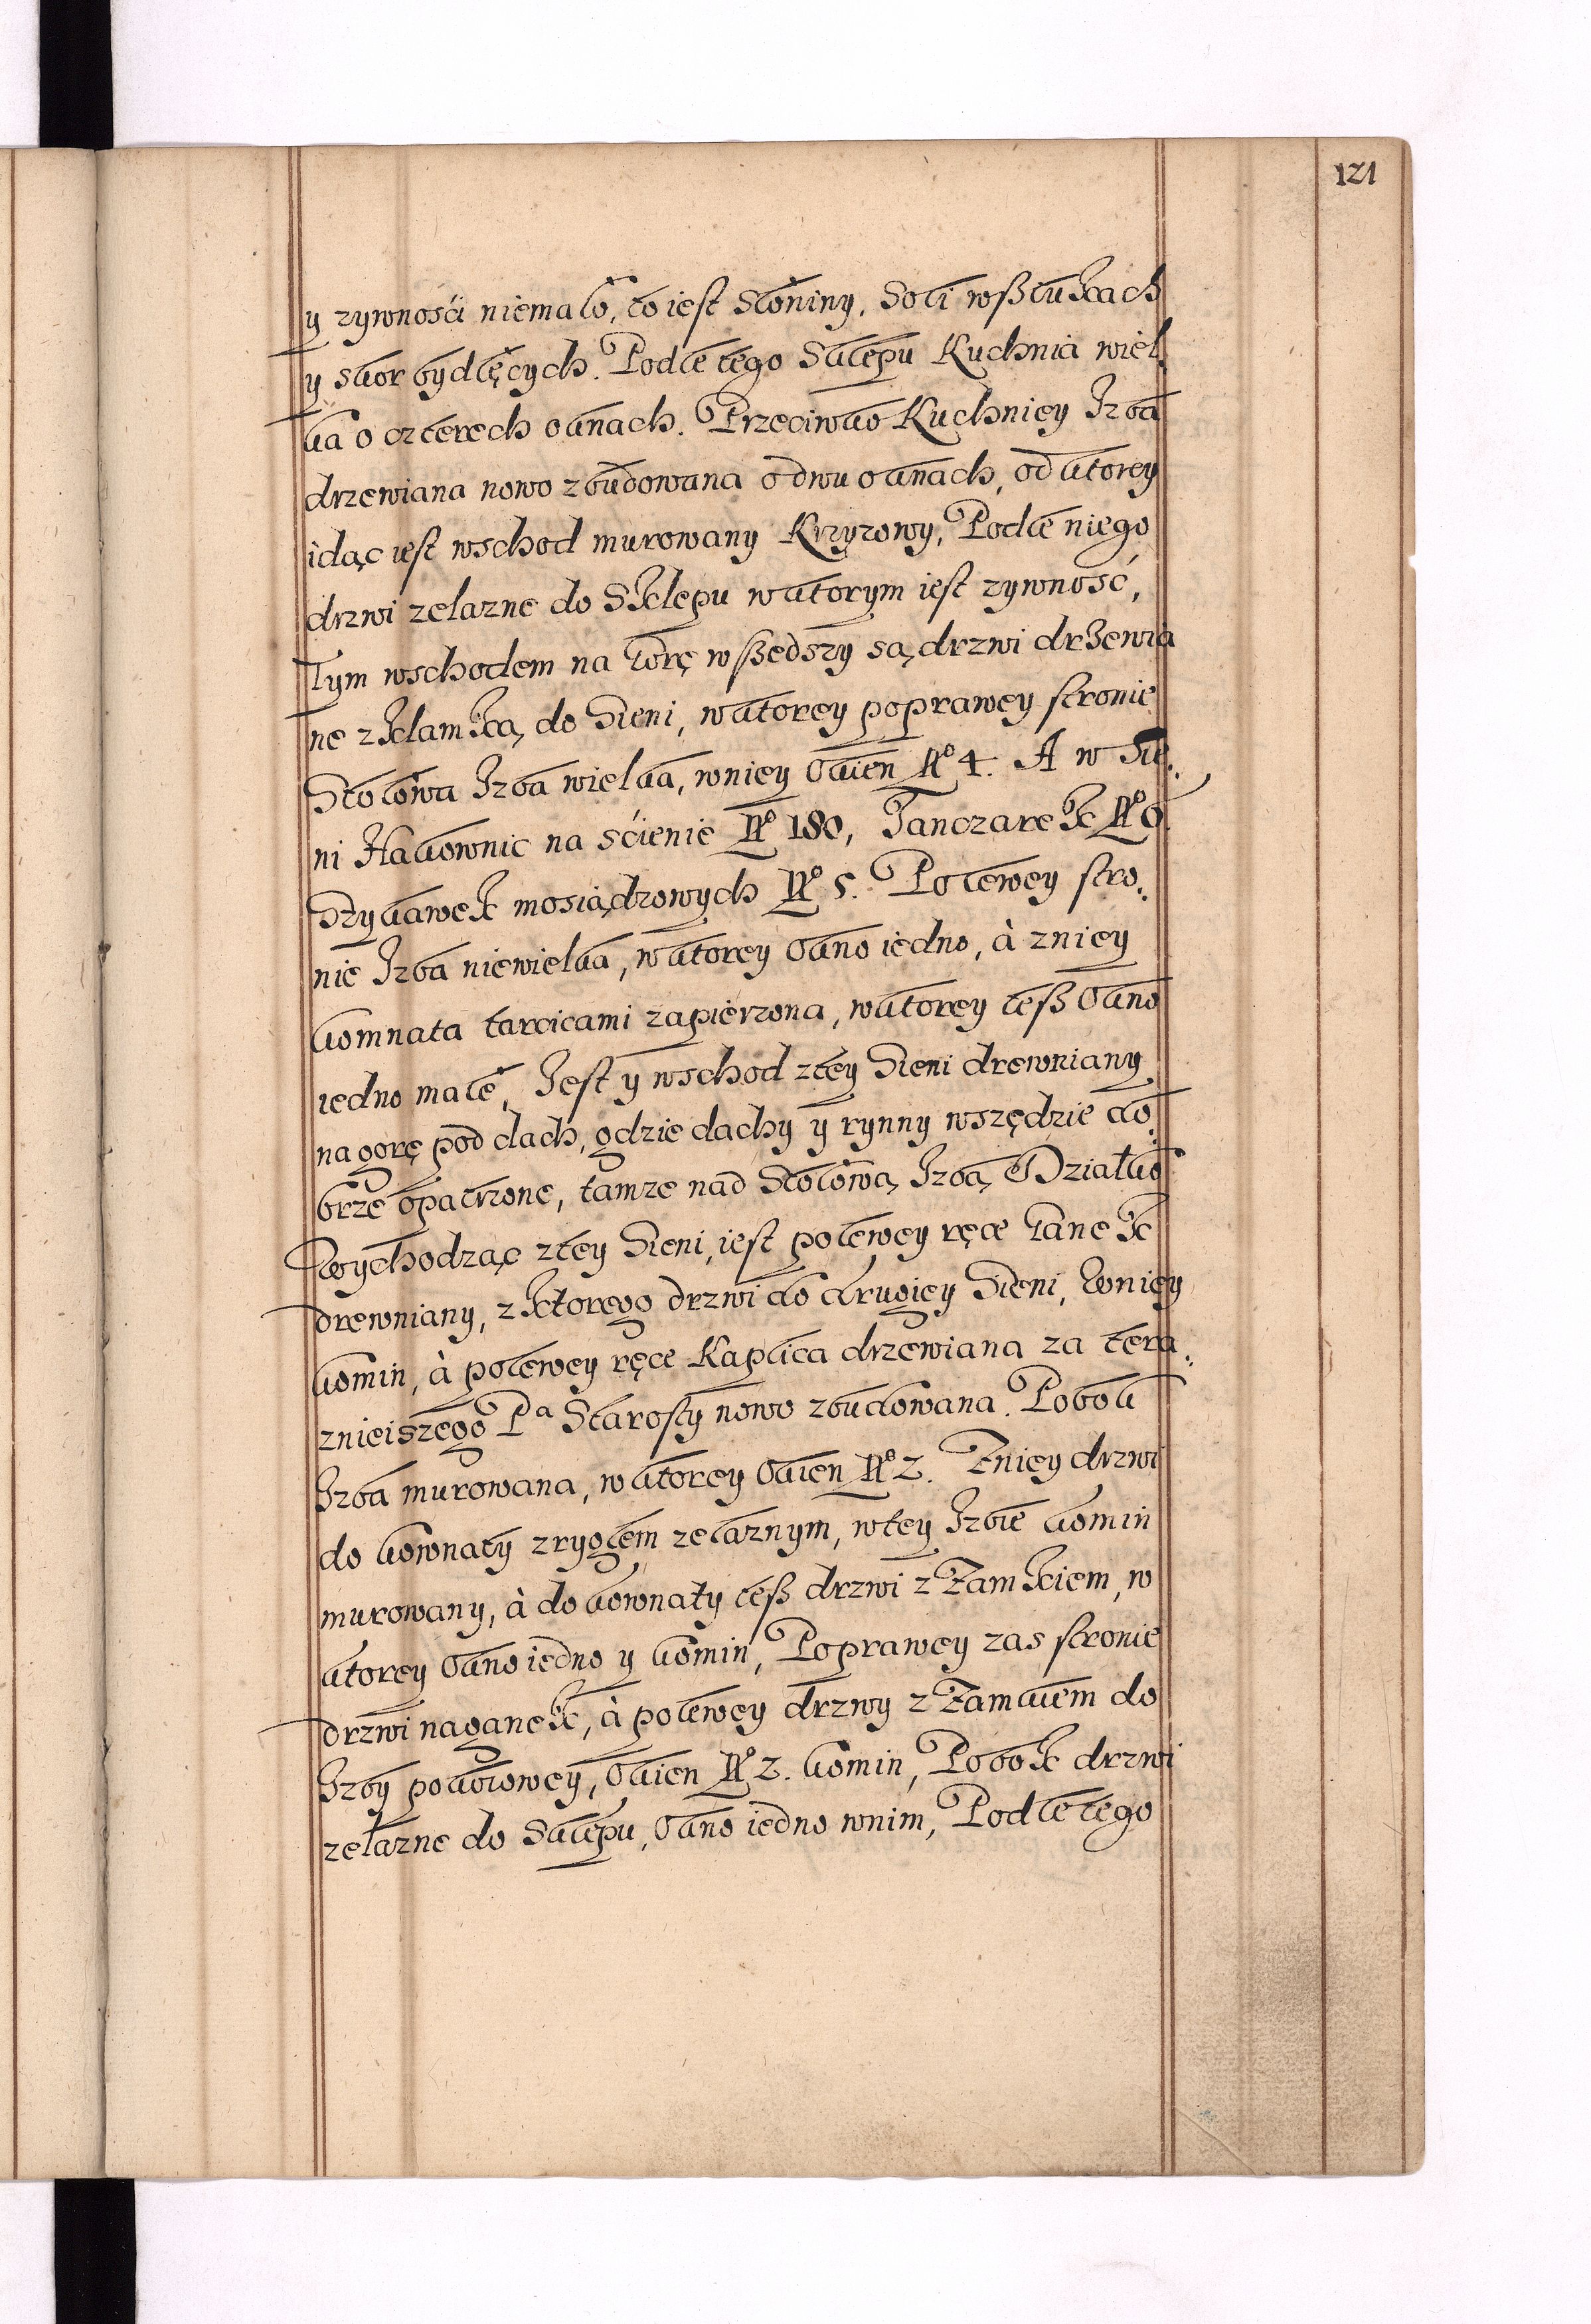 121
y zywnośći niemało, to iest Słoniny, Soli wßtukach
y skor bydlęcych. Podle tego Sklepu Kuchnia wiel
ka o czterech oknach. Przeciwko Kuchniey Izba
drzewiana nowo zbudowana o dwu oknach, od ktorey
idąc iest wschod murowany Krzyzowy, Podle niego
drzwi zelazne do Sklepu w ktorym iest zywność,
Tym wschodem na Gorę wßedszy są drzwi drzewia
ne z klamką do Sieni, w ktorey po prawey stronie
Stołowa Izba wielka, w niey Okien No 4. A w Sie
ni Hakownic na śćienie No 180, Janczarek No 6
Szrykawek mosiądzowych No 5. Po lewey stro
nie Izba niewielka, w ktorey Okno iedno, à z niey
komnata tarcicami zapierzona, w ktorey teß Okno
iedno małe, Iest y wschod z tey Sieni drewniany
na gorę pod dach, gdzie dachy y rynny wszędzie do
brze opatrzone, tamze nad Stołową Izbą Działko
Wychodząc z tey Sieni, iest po lewey ręce Ganek
drewniany, z ktorego drzwi do drugiey Sieni, w niey
komin, à po lewey ręce Kaplica drzewiana za tera
znieiszego Pa Starosty nowo zbudowana. Pobok
Izba murowana, w ktorey Okien No 2. Z niey drzwi
do kownaty z ryglem zelaznym, w tey Izbie komin
murowany, à do kownaty teß drzwi z Zamkiem, w
ktorey Okno iedno y komin, Po prawey zas stronie
drzwi na ganek, à po lewey drzwy z Zamkiem do
Izby pokoiowey, Okien No 2. komin, Pobok drzwi
zelazne do Sklepu, Okno iedno w nim, Podle tego